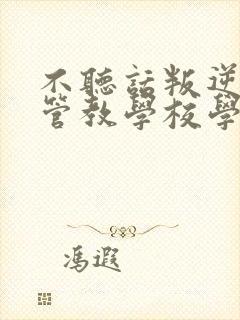 不聽話叛逆
管教學校學
馮遐